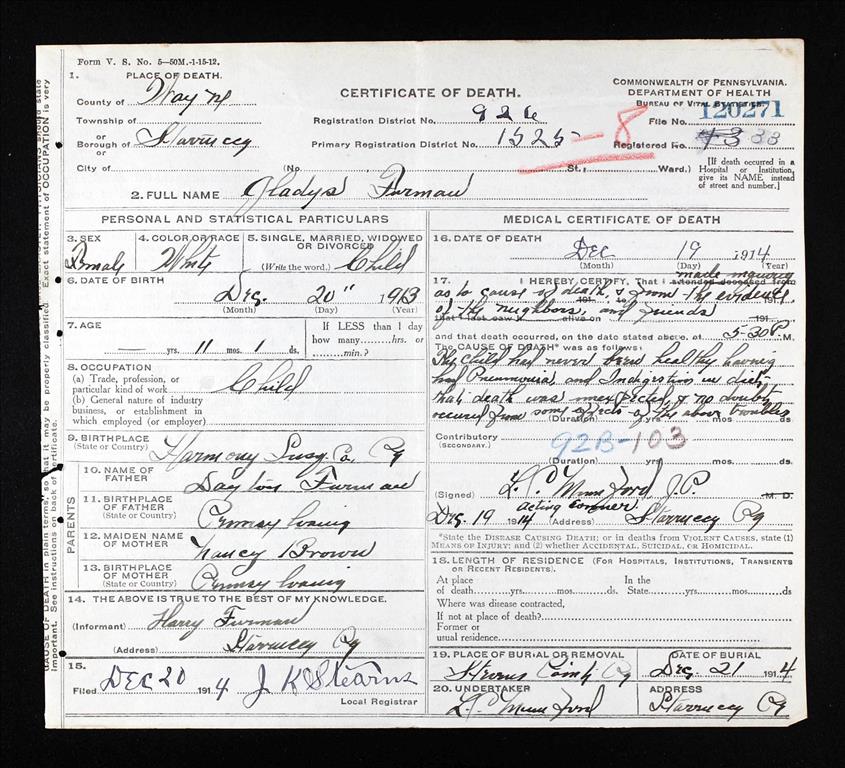 Form V. S. No. 5—50M.-1-15-12.
1. PLACE OF DEATH.
County of Wayne
Township of
or
Borough of Starrucca
City of
CERTIFICATE OF DEATH.
Registration District No. 926
Primary Registration District No. 1525 - 8
(No. St., Ward.)
COMMONWEALTH OF PENNSYLVANIA.
DEPARTMENT OF HEALTH
BUREAU OF VITAL STATISTICS.
File No. 120271
Registered No. 33
[If death occurred in a Hospital or Institution, give its NAME instead of street and number.]
2. FULL NAME Gladys Furman
PERSONAL AND STATISTICAL PARTICULARS
3. SEX
Female
4. COLOR OR RACE
White
5. SINGLE, MARRIED, WIDOWED OR DIVORCED
(Write the word.) Child
6. DATE OF BIRTH
Dec. 20" 1913
(Month) (Day) (Year)
7. AGE
— yrs. 11 mos. 1 ds.
If LESS than 1 day
how many hrs. or
min.?
8. OCCUPATION
(a) Trade, profession, or particular kind of work
Child
(b) General nature of industry business, or establishment in which employed (or employer)
9. BIRTHPLACE
(State or Country)
Harmony Susq. Co. Pa
PARENTS
10. NAME OF FATHER
Dayton Furman
11. BIRTHPLACE OF FATHER
(State or Country)
Pennsylvania
12. MAIDEN NAME OF MOTHER
Nancy Brown
13. BIRTHPLACE OF MOTHER
(State or Country)
Pennsylvania
14. THE ABOVE IS TRUE TO THE BEST OF MY KNOWLEDGE.
(Informant) Harry Furman
(Address) Starrucca Pa
15.
Filed Dec 20 1914 J K Stearns
Local Registrar
MEDICAL CERTIFICATE OF DEATH
16. DATE OF DEATH
Dec 19 1914
(Month) (Day) (Year)
17. I HEREBY CERTIFY, That I made inquiry
as to cause of death, & from the evidence
of the neighbors, and friends
and that death occurred, on the date stated above, at 5-30 P. M.
The CAUSE OF DEATH* was as follows:
The child had never been healthy having
had Pneumonia and Indigestion
that death was unexpected, & no doubt
occured from some effects of the above troubles
(Duration) yrs. mos. ds.
Contributory
(SECONDARY.)
92B-103
(Duration) yrs. mos. ds.
(Signed) L. P. Mumford J. P. M. D.
acting coroner
Dec. 19 1914 (Address) Starrucca Pa
*State the DISEASE CAUSING DEATH; or in deaths from VIOLENT CAUSES, state (1) MEANS OF INJURY; and (2) whether ACCIDENTAL, SUICIDAL, OR HOMICIDAL.
18. LENGTH OF RESIDENCE (FOR HOSPITALS, INSTITUTIONS, TRANSIENTS OR RECENT RESIDENTS).
At place of death yrs. mos. ds. In the State yrs. mos. ds
Where was disease contracted,
If not at place of death?
Former or
usual residence
19. PLACE OF BURIAL OR REMOVAL
Stevens Pa
DATE OF BURIAL
Dec. 21 1914
20. UNDERTAKER
L. P. Mumford
ADDRESS
Starrucca Pa